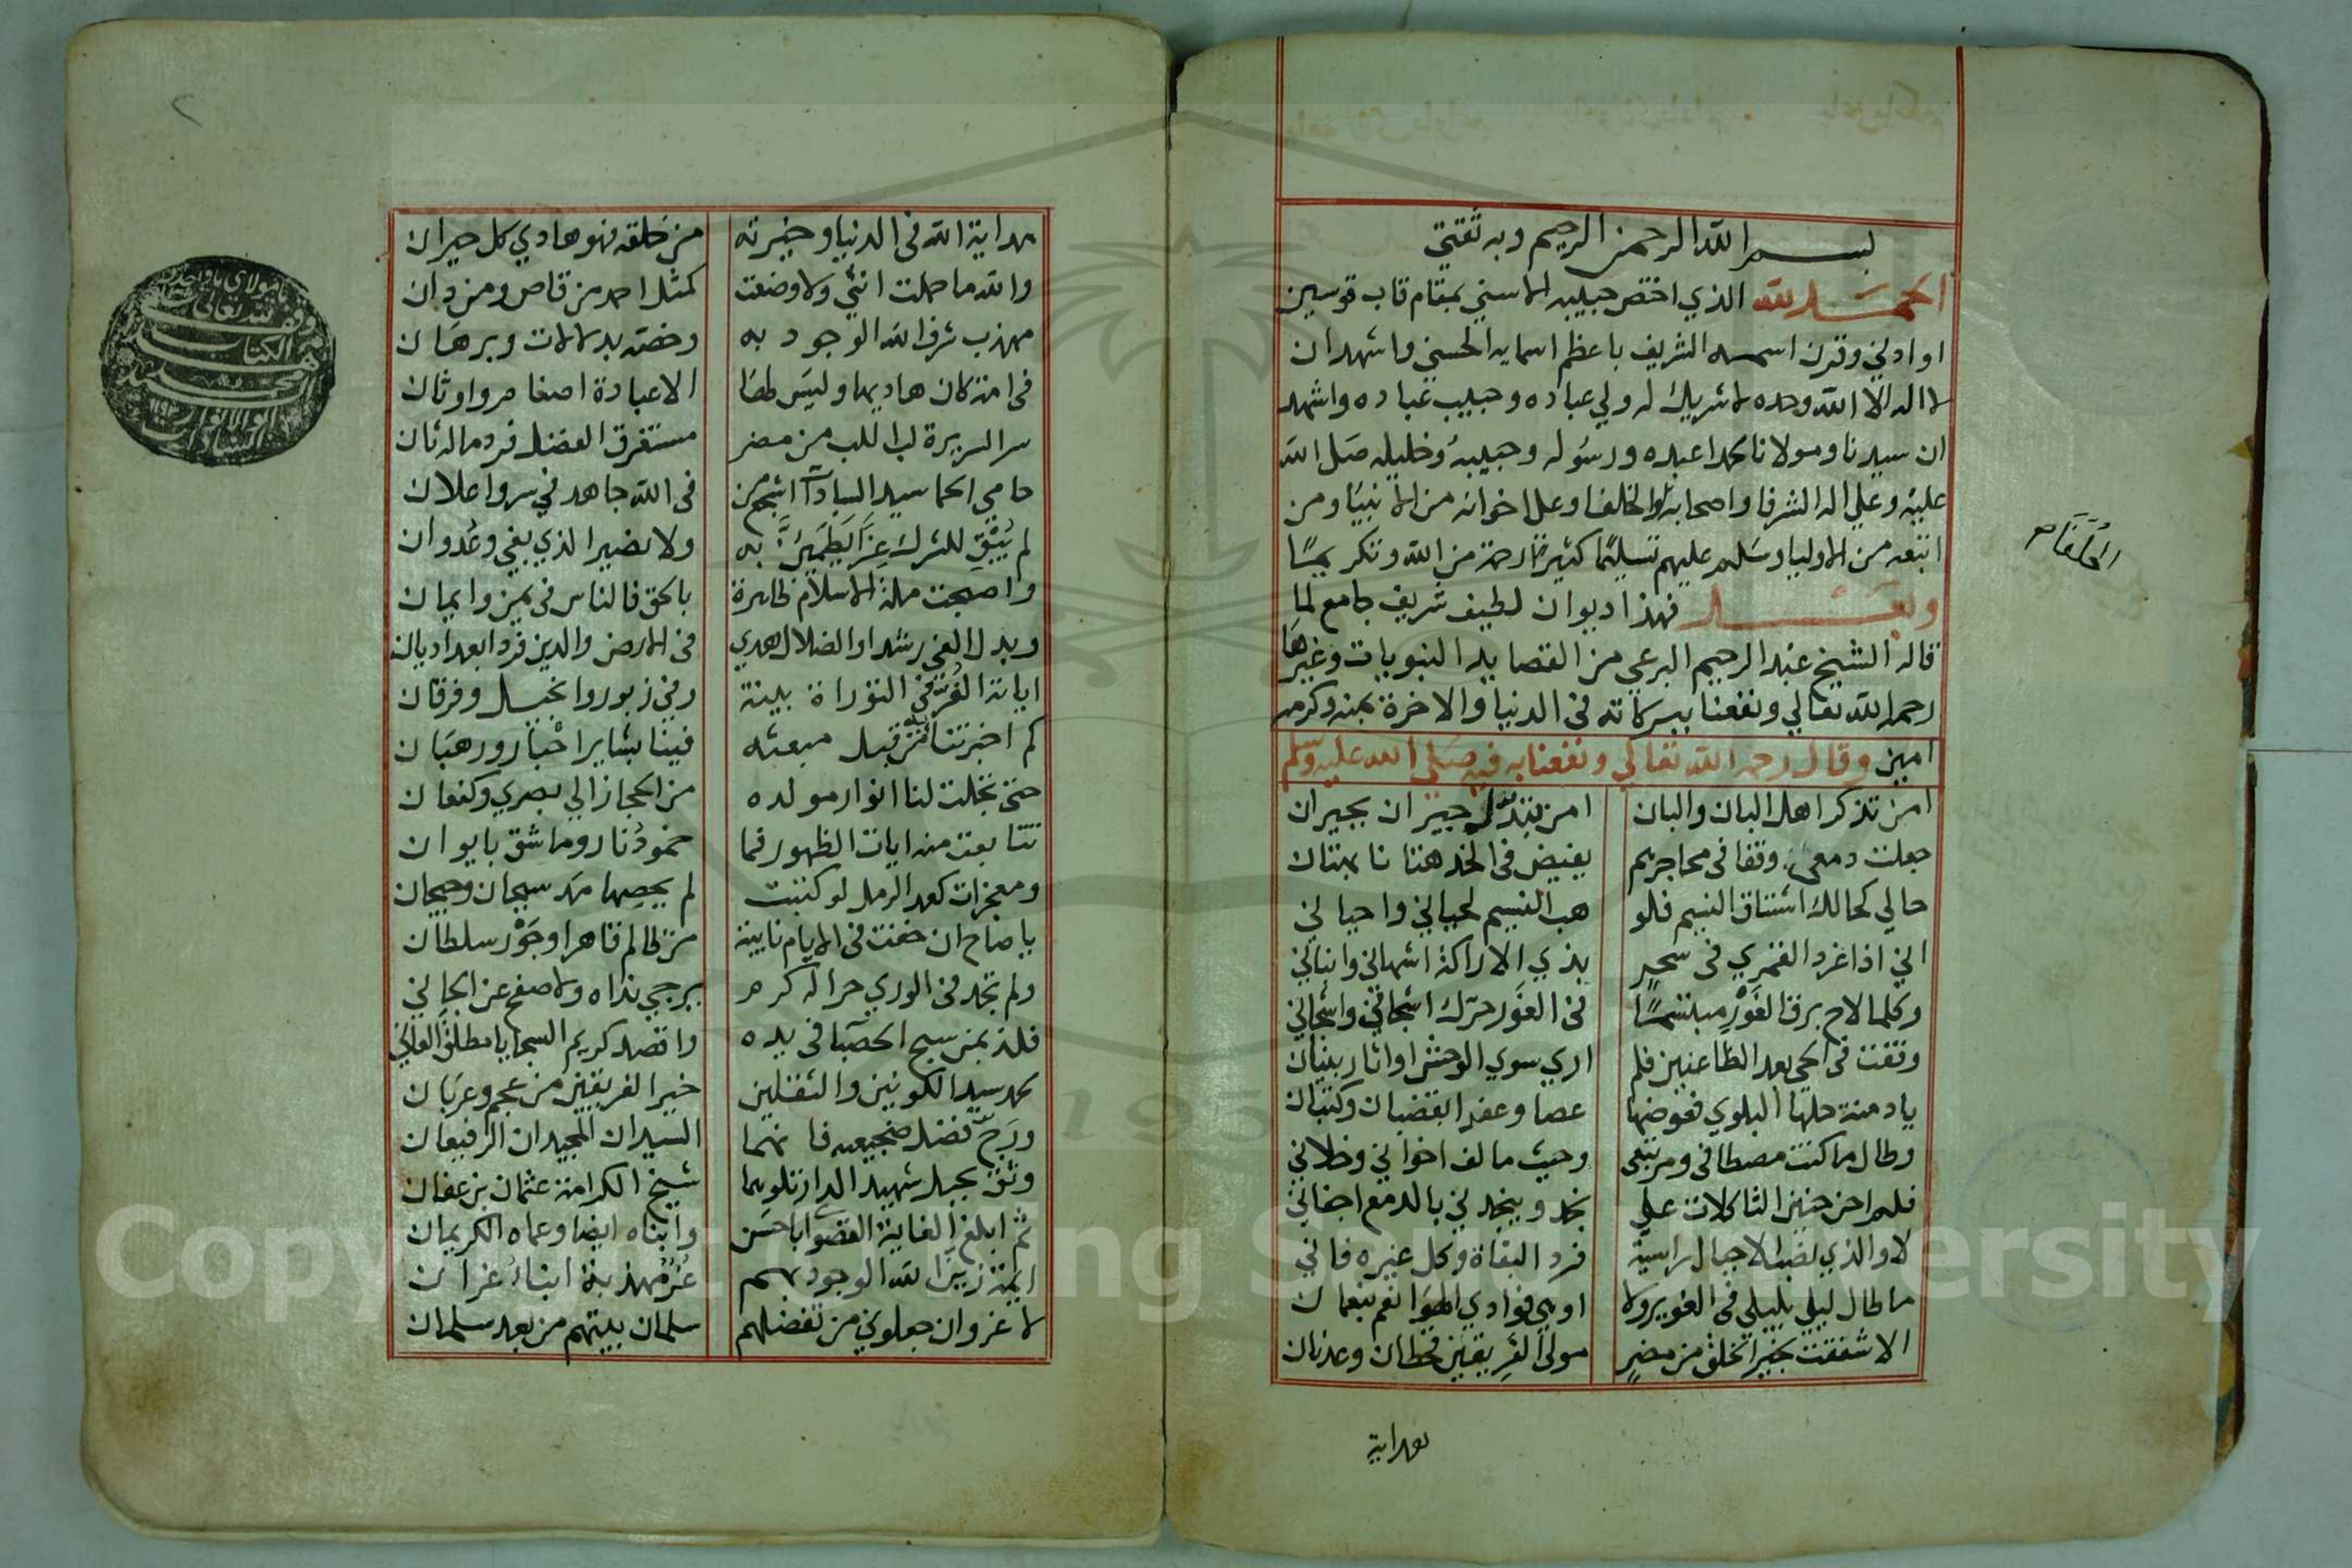 بسم الله الرحمن الرحيم وبه ثقتي
الحمد لله الذي اختص حبيبه الاسني بمقام قاب قوسين
او ادني وقرن اسمه الشريف باعظم اسمايه الحسني واشهد ان
لا اله الا الله وحده لا شريك له ولي عباده وحبيب عباده واشهد
ان سيدنا ومولانا محمدا عبده ورسوله وحبيبه وخليله صلى الله
عليه وعلي اله الشرفا واصحابه والخلفا وعلى اخوانه من الانبيا ومن
اتبعه من الاوليا وسلم عليهم تسليما كثيرا رحمة من الله وتكريما
وبعد فهذا ديوان لطيف شريف جامع لما
قاله الشيخ عبد الرحيم البرعي من القصايد النبويات وغيرها
رحمه الله تعالي ونفعنا ببركاته في الدنيا والاخرة بمنه وكرمه
امين وقال رحمه الله تعالي ونفعنا به فيه صلي الله عليه وسلم
امن تذكر اهل البان والبان امن تبدل جيران بجيران
جعلت دمعي وقفا في محاجرهم يفيض في الخد هتانا بهتان
حالي كحالك اشتاق النسيم فلو هب النسيم لحياني واحياني
اني اذا غرد القمري في سحر بذي الاراكة اشهاني وانباني
وكلما لاح برق الغور مبتسما في الغور حرك اشجاني واشجاني
وقفت في الحي بعد الظاعنين فلم اري سوي الوحش او اثار بنيان
يا دمنة حلها البلوي فعوضها عصا وعفر ابقضبان وكثبان
وطال ما كنت مصطافي ومرتبعي وحيث مالف اخواني وخلاني
فلم احن حنين الثاكلات علي نجد وينجدني بالدمع اجفاني
لا والذي نصب الاجبال راسية فرد البقاة وكل غيره فاني
ما طال ليلي بليلي في الغوير ولا اوهي فوادي الهوا نعم بنعمان
الا شغفت بخير الخلق من مضر مولى الفريقين قحطان وعدنان
بهداية
الخلفاء
بهداية الله في الدنيا وخيرته من خلقه فهو هادي كل حيران
والله ما حملت انثي ولا وضعت كمثل احمد من قاص ومن دان
مهذب شرف الله الوجود به وخصه بدلالات وبرهان
في امة كان هاديها وليس لها الا عبادة اصنام واوثان
سر السريرة لب اللب من مضر مستغرق الفضل فرد ماله ثان
حامي الحما سيد السادات اشجع من في الله جاهد في سر واعلان
لم يبق للشرك عزا يطمئن به ولا نصيرا لذي بغي وعدوان
واصبحت ملة الاسلام ظاهرة بالحق فالناس في يمن وايمان
وبدل الغي رشدا والضلال هدي في الارض والدين فردا بعد اديان
اياته الغر في التوراة بينة وفي زبور وانجيل وفرقان
كم اخبرتنا به من قبل مبعثه فينا بشاير احبار ورهبان
حتى تجلت لنا انوار مولده من الحجاز الي بصري وكنعان
تتابعت منه ايات الظهور فما خمود نار وما شق بايوان
ومعجزات كعد الرمل لو كتبت لم يحصها مد سيحان وجيحان
يا صاح ان خفت في الايام نايبة من ظالم قاهر او جور سلطان
ولم تجد في الوري حرا له كرم يرجي نداه ولا صفح عن الجاني
فلذ بمن سبح الحصبا في يده واقصد كريم السجايا مطلق العاني
محمد سيد الكونين والثقلين خير الفريقين من عجم وعربان
ورج فضل ضجيعيه فانهما السيدان المجيدان الرفيعان
وثق بحبل شهيد الدار تلوهما شيخ الكرامة عثمان بن عفان
ثم ابلغ الغاية القصوا ابا حسن وابناه ايضا وعماه الكريمان
ايمة زين الله الوجود بهم غر مهذبة ابناء غران
لا غرو ان جعلوني من تفضلهم سلمان بيتهم من بعد سلمان
يا مولاي يا واحد
وقف لله تعالى
Copyright © King Saud University
195